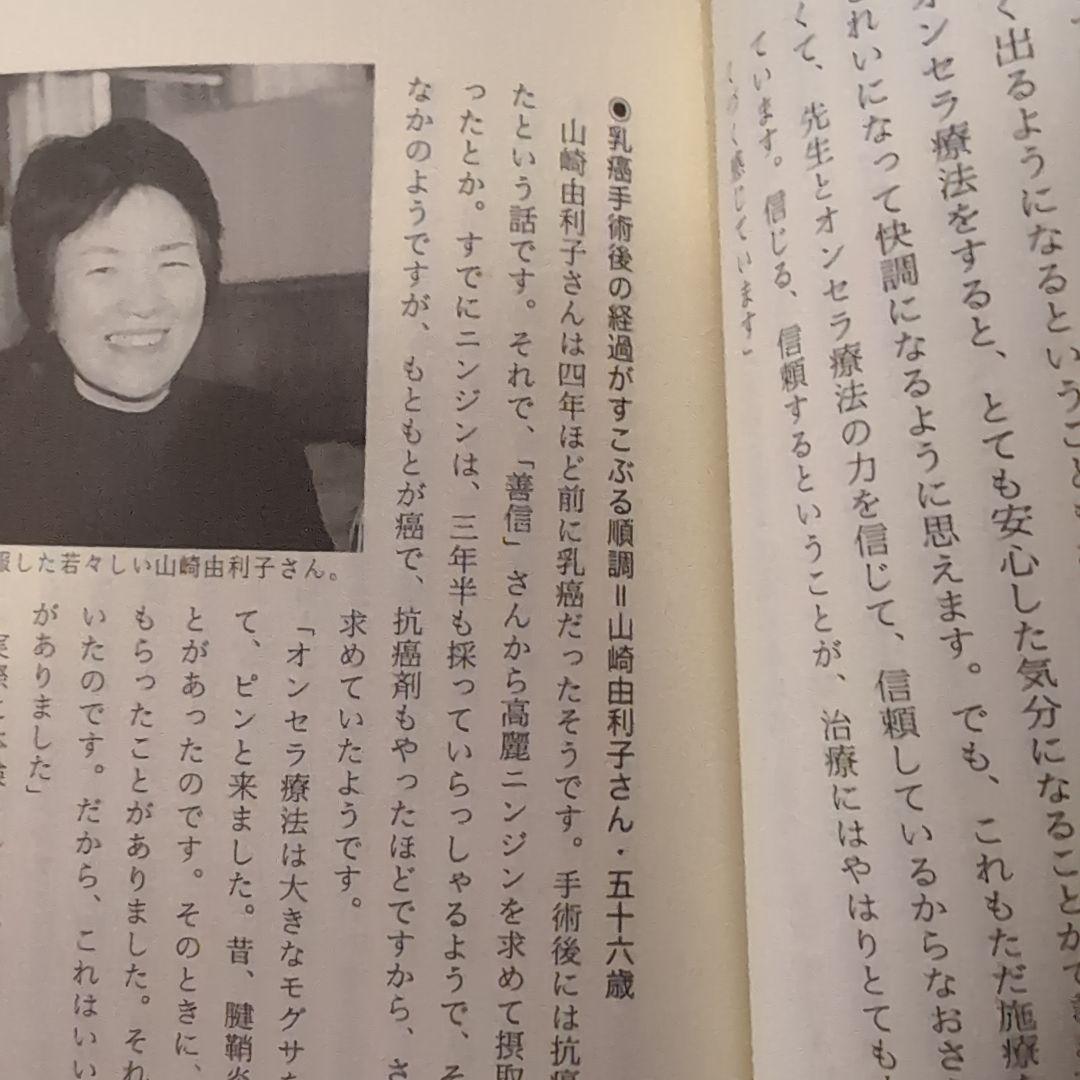 く出るようになるということも
オンセラ療法をすると、とても安心した気分になることができ
れいになって快調になるように思えます。でも、これもただ施療
くて、先生とオンセラ療法の力を信じて、信頼しているからなおさ
ています。信じる、信頼するということが、治療にはやはりとても
感じています」
◉乳癌手術後の経過がすこぶる順調＝山崎由利子さん・五十六歳
山崎由利子さんは四年ほど前に乳癌だったそうです。手術後には抗癌
たという話です。それで、「善信」さんから高麗ニンジンを求めて摂取
ったとか。すでにニンジンは、三年半も採っていらっしゃるようで、そ
なかのようですが、もともとが癌で、抗癌剤もやったほどですから、さ
求めていたようです。
「オンセラ療法は大きなモグサを
て、ピンと来ました。昔、腱鞘炎
とがあったのです。そのときに、
もらったことがありました。それ
いたのです。だから、これはいい
がありました」
実際に体験
した若々しい山崎由利子さん。